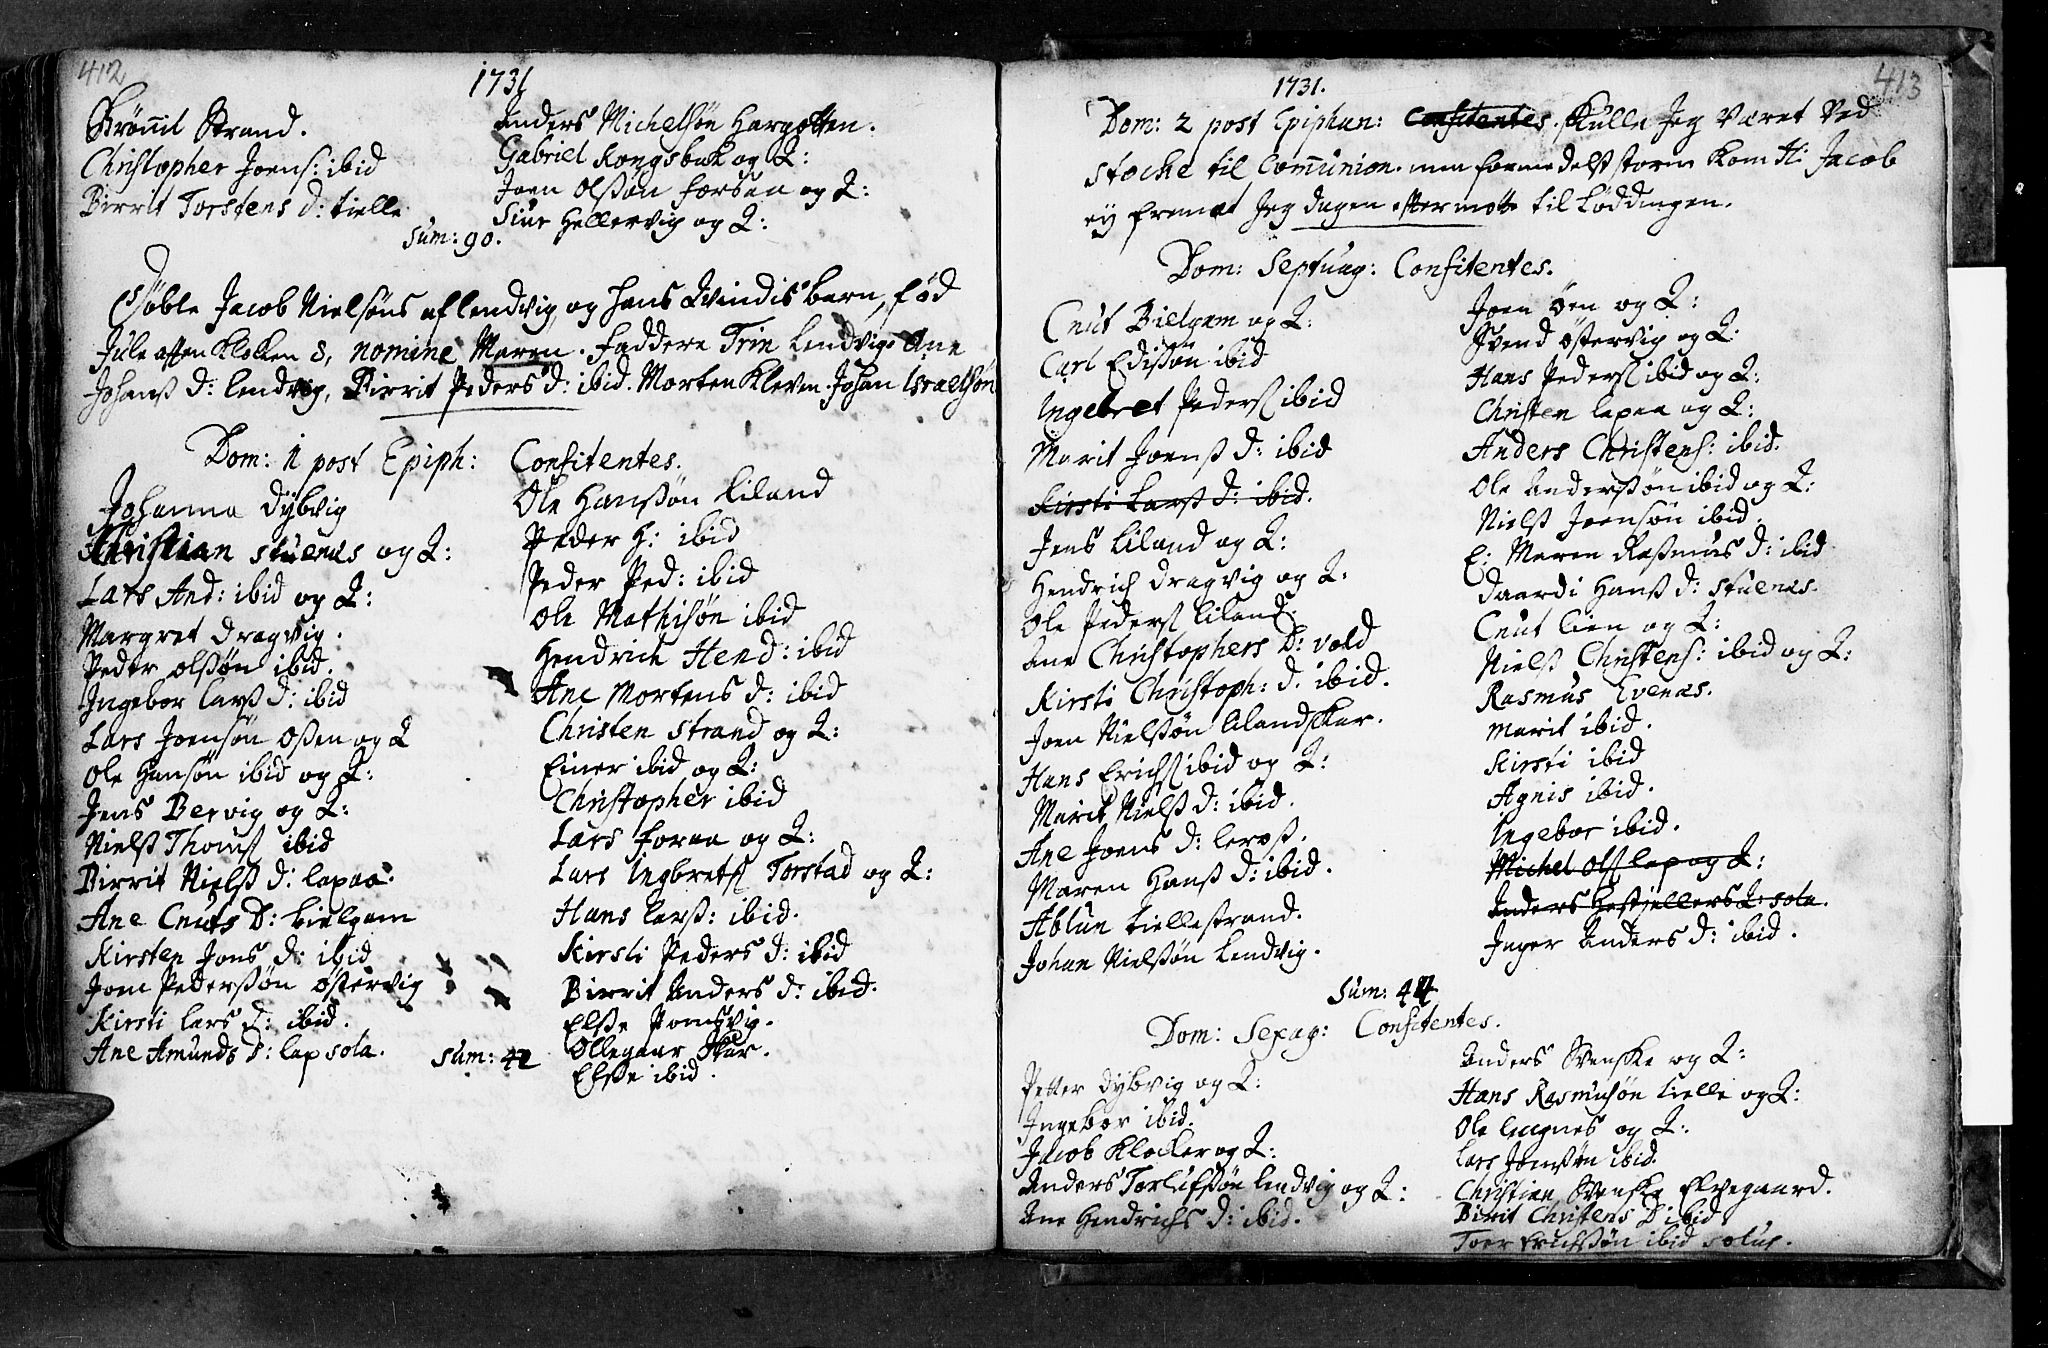 412
1731
Brönil Strand.
Christopher Joens: ibid
Birrit Torstens d: tielle
Anders Michelsön Hargotten.
Gabriel Kongsbak og Q:
Joen Olssön forsaa og Q:
Siur Hellervig og Q:
Sum: 90.
Döble Jacob Nielsöns af lendvig, og hans Qvindis barn, föd
Jule aften Klocken 8, nomine Maren. Faddere Trin Lendvig. Ane
Johanss d: lendvig, Birrit Peders d: ibid. Morten Kleven. Johan Israelsön
Dom: 1 post Epiph: Confitentes.
Johanna Dybvig
Christian Stuenes og Q:
Lars And: ibid og Q:
Margret Dragvig.
Peder olssön ibid.
Ingebor Larss d: ibid
Lars Joensön Osen og Q
Ole Hansön ibid og Q:
Jens Bervig og Q:
Nielss Thoms ibid
Birrit Nielss d: lapaa.
Ane Cnuts D: bielgam
Kirsten Jons d: ibid
Joen Pederssön östervig
Kirsti Lars d: ibid.
Ane Amunds d: lap sola.
Sum: 42
Ole Hanssön Liland
Peder H: ibid
Peder Ped: ibid
Ole Mathisön ibid
Hendrich Hend: ibid
Ane Mortens d: ibid
Christen Strand og Q:
Einer ibid og Q:
Christopher ibid
Lars foraa og Q:
Lars Ingbrets Torstad og Q:
Hans Larss: ibid.
Kirsti Peders d: ibid
Birrit Anders d: ibid.
Elsse Pomsvig.
Ollegaar Skar.
Elsse ibid.
413
1731.
Dom: 2 post Epiphan: Confitentes. Skulle Jeg Været Ved
Stocke til Comunion. men formedelst storm kom Hr Jacob
ey frem at Jeg dagen efter motte til Löddingen.
Dom: Septuag: Confitentes.
Cnut Bielgam og Q:
Carl Edissön ibid
Ingebret Peders ibid
Marit Joenss d: ibid
Kirsti Larss d: ibid.
Jens Liland og Q:
Hendrich Dragvig og Q:
Ole Peders Liland.
Ane Christophers D: vold
Kirsti Christoph: d. ibid.
Joen Nielssön Lilandskar.
Hans Erichs ibid og Q:
Marit Nielss d: ibid.
Ane Joens d: leross.
Maren Hanss d: ibid.
Ablun tiellestrand.
Johan Nielssön Lendvig.
Joen öen og Q:
Svend östervig og Q:
Hans Peders ibid og Q:
Christen lapaa og Q:
Anders Christens: ibid.
Ole Anderssön ibid og Q:
Nielss Joensön ibid.
E: Maren Rasmus d: ibid
Daardi Hanss d: Stuenes.
Cnut Lien og Q:
Nielss Christens: ibid og Q:
Rasmus Evenes.
Marit ibid.
Kirsti ibid
Agnis ibid.
Ingebor ibid.
Michel Ols lap og Q:
Anders Hesfjellers Q: sola.
Inger Anders d: ibid.
Sum: 44
Dom: Sexag: Confitentes.
Petter Dybvig og Q:
Ingebor ibid.
Jacob Klocker og Q:
Anders Torlufssön Lendvig og Q:
Ane Hendrichs d: ibid.
Anders Svenske og Q:
Hans Rasmusön tielle og Q:
Ole Liegnes og Q:
Lars Jonssön ibid.
Christian Svenske Elvegaard.
Birit Christens D ibid
ibid solus.